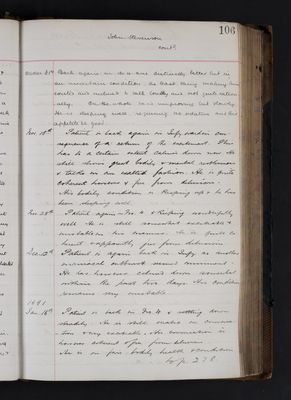 106
John Stevenson
contd.
October 31st Back again in No 4 and distinctly better but in
an uncertain condition. At
and inclined to talk loudly and not quite ration
-ally. On the whole he is improving but slowly.
He is sleeping well requiring no sedative and his
appetite is good.
Nov. 18th. Patient is back again in Infy. ward on con-
sequence of a return of the excitement. This
has to a certain extent calmed down now. He
still shows great bodily & mental restlessness
& talks in an exalted fashion. He is quite
coherent however & free from delusions.
His bodily condition is keeping up & he has
been sleeping well.
Nov. 28th. Patient again in No. 4 & keeping wonderfully
well. He is still somewhat excitable &
unstable in his manner. He is quite co-
herent & apparently free from delusions.
Dec. 12th Patient is again back in Infy. as another
maniacal outburst seemed imminent.
He has however calmed down somewhat
within the past two days. His condition
remains very unstable.
1891
Jan. 16th Patient is back in No. 4 & settling down
steadily. He is still in conversa-
tion & very excitable. His conversation is
however coherent & free from delusions.
He is in fair bodily health & condition
to p. 278.